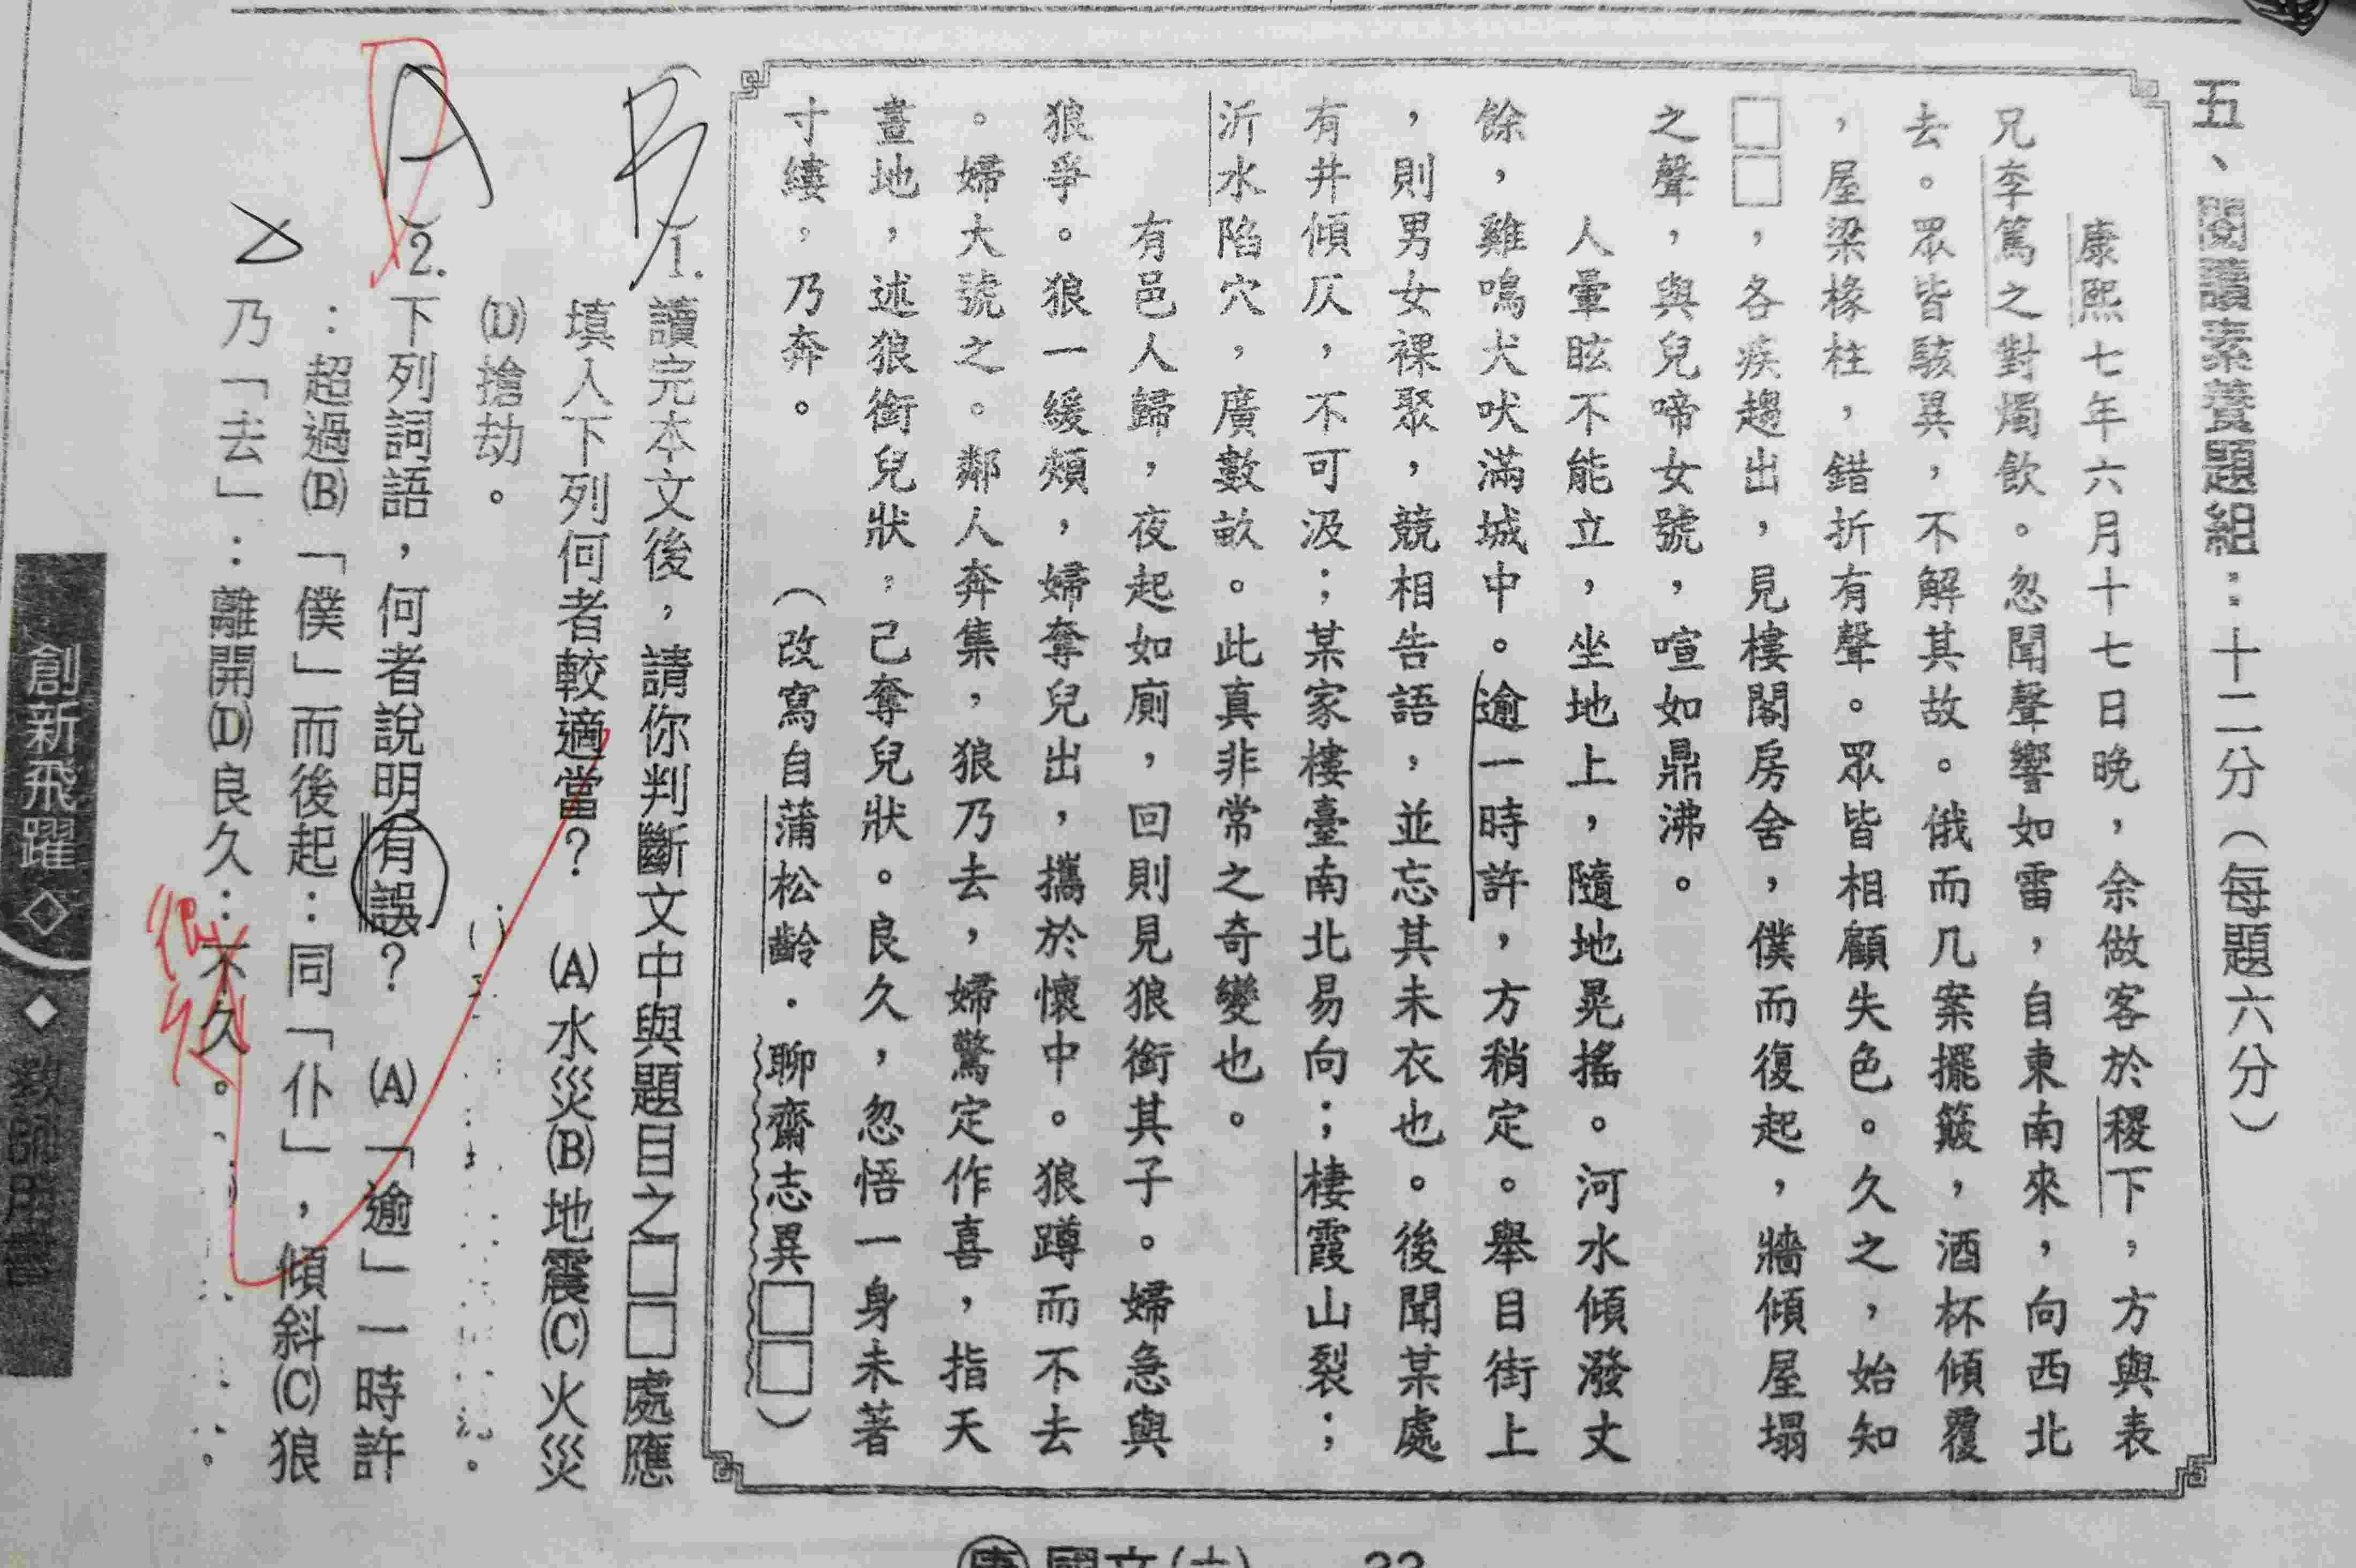 五、閱讀素養題組：十二分（每題六分）
康熙七年六月十七日晚，余做客於稷下，方與表
兄李篤之對燭飲。忽聞聲響如雷，自東南來，向西北
去。眾皆駭異，不解其故。俄而几案擺簸，酒杯傾覆
，屋梁椽柱，錯折有聲。眾皆相顧失色。久之，始知
□□，各疾趨出，見樓閣房舍，僕而復起，牆傾屋塌
之聲，與兒啼女號，喧如鼎沸。
人暈眩不能立，坐地上，隨地晃搖。河水傾潑丈
餘，雞鳴犬吠滿城中。逾一時許，方稍定。舉目街上
，則男女裸聚，競相告語，並忘其未衣也。後聞某處
有井傾仄，不可汲；某家樓臺南北易向；棲霞山裂；
沂水陷穴，廣數畝。此真非常之奇變也。
有邑人歸，夜起如廁，回則見狼銜其子。婦急與
狼爭。狼一緩頰，婦奪兒出，攜於懷中。狼蹲而不去
。婦大號之。鄰人奔集，狼乃去，婦驚定作喜，指天
畫地，述狼銜兒狀，己奪兒狀。良久，忽悟一身未著
寸縷，乃奔。
（改寫自蒲松齡．聊齋志異□□）
B
1.讀完本文後，請你判斷文中與題目之□□處應
填入下列何者較適當？ (A)水災(B)地震(C)火災
(D)搶劫。
A
2.下列詞語，何者說明有誤？ (A)「逾」一時許
：超過(B)「僕」而後起：同「仆」，傾斜(C)狼
乃「去」：離開(D)良久：不久。
很久
創新飛躍◇◆教師用書
康 國文(六) 33